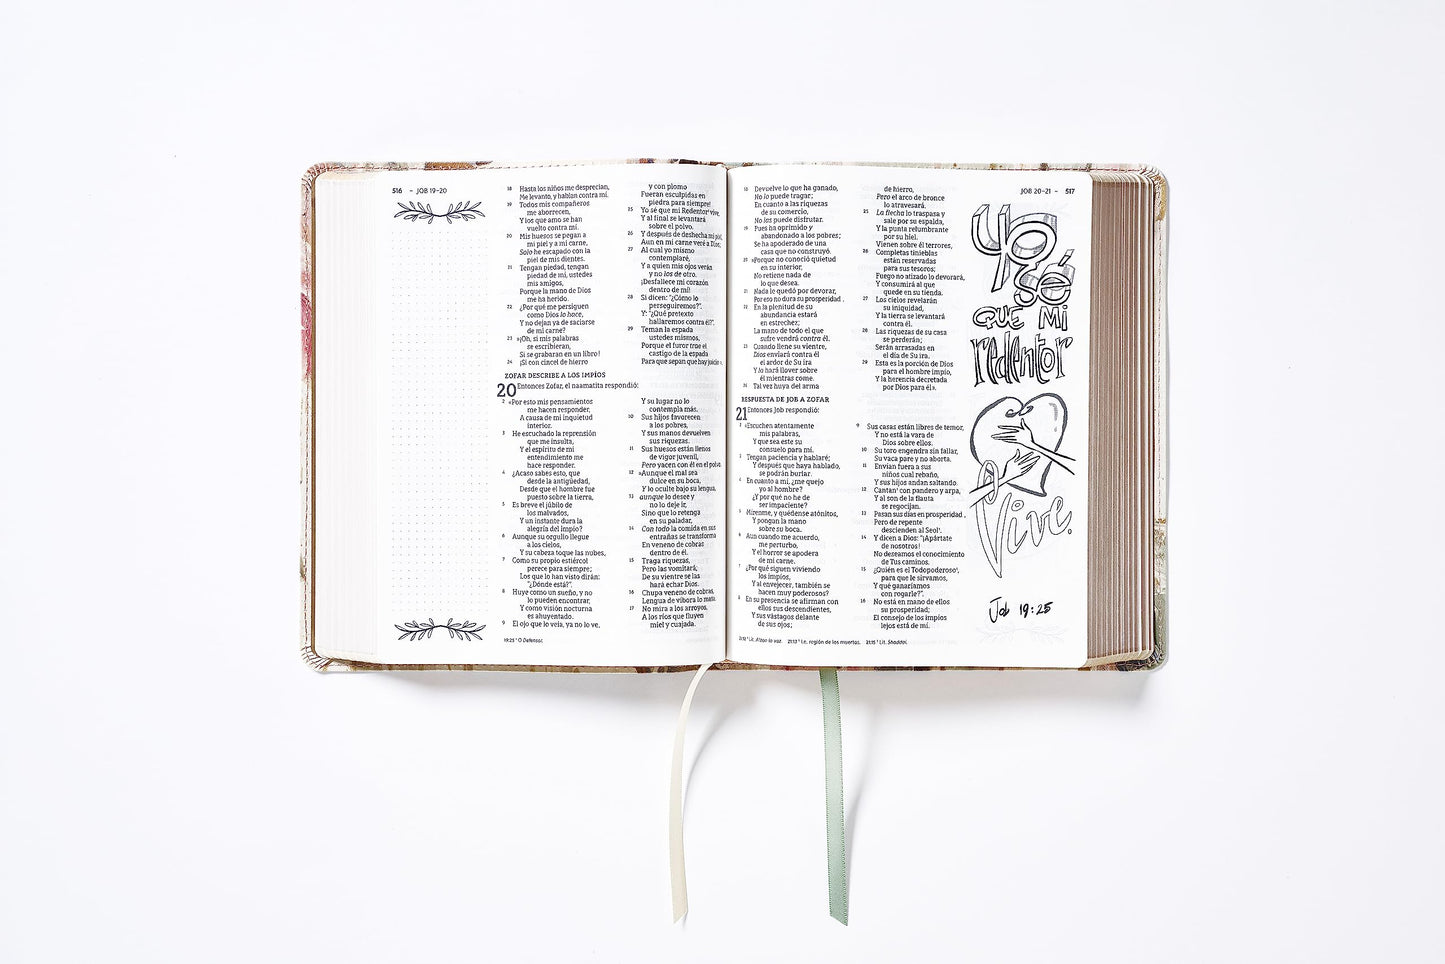 516 - JOB 19–20
18 Hasta los niños me desprecian,
Me levanto, y hablan contra mí.
19 Todos mis compañeros
me aborrecen,
Y los que amo se han
vuelto contra mí.
20 Mis huesos se pegan a
mi piel y a mi carne,
Solo he escapado con la
piel de mis dientes.
21 Tengan piedad, tengan
piedad de mí, ustedes
mis amigos,
Porque la mano de Dios
me ha herido.
22 ¿Por qué me persiguen
como Dios lo hace,
Y no dejan ya de saciarse
de mi carne?
23 »¡Oh, si mis palabras
se escribieran,
Si se grabaran en un libro!
24 ¡Si con cincel de hierro
y con plomo
Fueran esculpidas en
piedra para siempre!
25 Yo sé que mi Redentor¹ vive,
Y al final se levantará
sobre el polvo.
26 Y después de deshecha mi piel,
Aun en mi carne veré a Dios;
27 Al cual yo mismo
contemplaré,
Y a quien mis ojos verán
y no los de otro.
¡Desfallece mi corazón
dentro de mí!
28 Si dicen: "¿Cómo lo
perseguiremos?".
Y: "¿Qué pretexto
hallaremos contra él?".
29 Teman la espada
ustedes mismos,
Porque el furor trae el
castigo de la espada
Para que sepan que hay juicio».
ZOFAR DESCRIBE A LOS IMPÍOS
20 Entonces Zofar, el naamatita respondió:
2 «Por esto mis pensamientos
me hacen responder,
A causa de mi inquietud
interior.
3 He escuchado la reprensión
que me insulta,
Y el espíritu de mi
entendimiento me
hace responder.
4 ¿Acaso sabes esto, que
desde la antigüedad,
Desde que el hombre fue
puesto sobre la tierra,
5 Es breve el júbilo de
los malvados,
Y un instante dura la
alegría del impío?
6 Aunque su orgullo llegue
a los cielos,
Y su cabeza toque las nubes,
7 Como su propio estiércol
perece para siempre;
Los que lo han visto dirán:
"¿Dónde está?".
8 Huye como un sueño, y no
lo pueden encontrar,
Y como visión nocturna
es ahuyentado.
9 El ojo que lo veía, ya no lo ve,
Y su lugar no lo
contempla más.
10 Sus hijos favorecen
a los pobres,
Y sus manos devuelven
sus riquezas.
11 Sus huesos están llenos
de vigor juvenil,
Pero yacen con él en el polvo.
12 »Aunque el mal sea
dulce en su boca,
Y lo oculte bajo su lengua,
13 Aunque lo desee y
no lo deje ir,
Sino que lo retenga
en su paladar,
14 Con todo la comida en sus
entrañas se transforma
En veneno de cobras
dentro de él.
15 Traga riquezas,
Pero las vomitará;
De su vientre se las
hará echar Dios.
16 Chupa veneno de cobras,
Lengua de víbora lo mata.
17 No mira a los arroyos,
A los ríos que fluyen
miel y cuajada.
19:25 ¹ O Defensor.
JOB 20–21 - 517
18 Devuelve lo que ha ganado,
No lo puede tragar;
En cuanto a las riquezas
de su comercio,
No las puede disfrutar.
19 Pues ha oprimido y
abandonado a los pobres;
Se ha apoderado de una
casa que no construyó.
20 »Porque no conoció quietud
en su interior,
No retiene nada de
lo que desea.
21 Nada le quedó por devorar,
Por eso no dura su prosperidad.
22 En la plenitud de su
abundancia estará
en estrechez;
La mano de todo el que
sufre vendrá contra él.
23 Cuando llene su vientre,
Dios enviará contra él
el ardor de Su ira
Y la hará llover sobre
él mientras come.
24 Tal vez huya del arma
de hierro,
Pero el arco de bronce
lo atravesará.
25 La flecha lo traspasa y
sale por su espalda,
Y la punta relumbrante
por su hiel.
Vienen sobre él terrores,
26 Completas tinieblas
están reservadas
para sus tesoros;
Fuego no atizado lo devorará,
Y consumirá al que
quede en su tienda.
27 Los cielos revelarán
su iniquidad,
Y la tierra se levantará
contra él.
28 Las riquezas de su casa
se perderán;
Serán arrasadas en
el día de Su ira,
29 Esta es la porción de Dios
para el hombre impío,
Y la herencia decretada
por Dios para él».
RESPUESTA DE JOB A ZOFAR
21 Entonces Job respondió:
2 «Escuchen atentamente
mis palabras,
Y que sea este su
consuelo para mí.
3 Tengan paciencia y hablaré;
Y después que haya hablado,
se podrán burlar.
4 En cuanto a mí, ¿me quejo
yo al hombre?
¿Y por qué no he de
ser impaciente?
5 Mírenme, y quédense atónitos,
Y pongan la mano
sobre su boca.
6 Aun cuando me acuerdo,
me perturbo,
Y el horror se apodera
de mi carne.
7 ¿Por qué siguen viviendo
los impíos,
Y al envejecer, también se
hacen muy poderosos?
8 En su presencia se afirman con
ellos sus descendientes,
Y sus vástagos delante
de sus ojos;
9 Sus casas están libres de temor,
Y no está la vara de
Dios sobre ellos.
10 Su toro engendra sin fallar,
Su vaca pare y no aborta.
11 Envían fuera a sus
niños cual rebaño,
Y sus hijos andan saltando.
12 Cantan¹ con pandero y arpa,
Y al son de la flauta
se regocijan.
13 Pasan sus días en prosperidad,
Pero de repente
descienden al Seol¹.
14 Y dicen a Dios: "¡Apártate
de nosotros!
No deseamos el conocimiento
de Tus caminos.
15 ¿Quién es el Todopoderoso¹,
para que le sirvamos,
Y qué ganaríamos
con rogarle?".
16 No está en mano de ellos
su prosperidad;
El consejo de los impíos
lejos está de mí.
21:12 ¹ Lit. Alzan la voz. 21:13 ¹ I.e. región de los muertos. 21:15 ¹ Lit. Shaddai.
Yo
sé
QUE MI
redentor
Vive.
Job 19:25